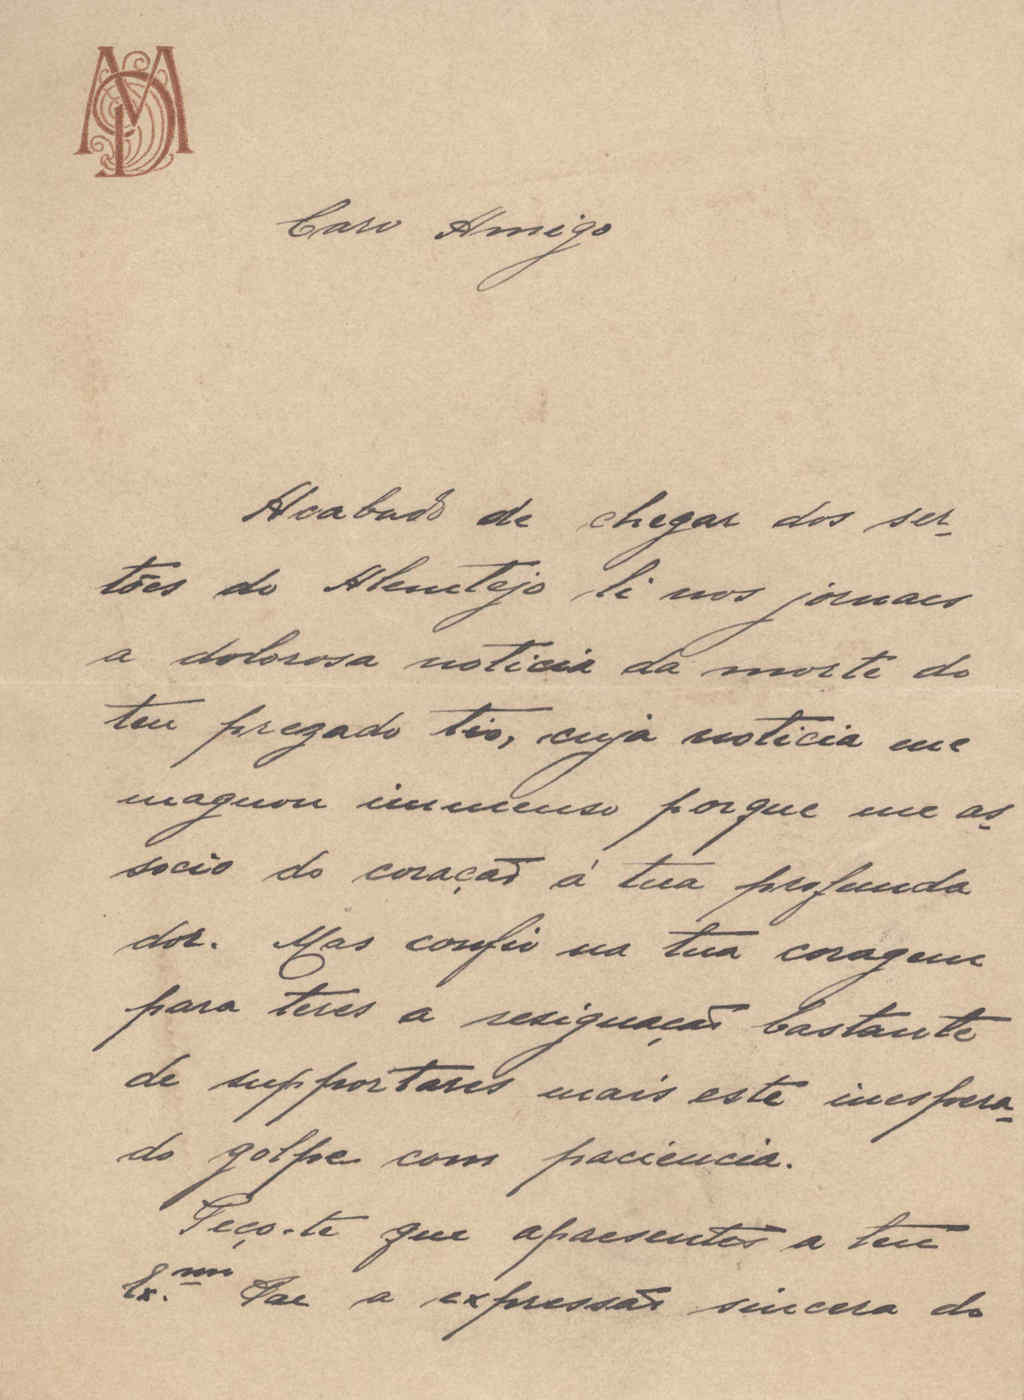 MD
Caro Amigo
Acabado de chegar dos ser-
tões do Alemtejo li nos jornaes
a dolorosa noticia da morte do
teu prezado tio, cuja noticia me
maguou immenso porque me as-
socio do coração á tua profunda
dor. Mas confio na tua coragem
para teres a resignação bastante
de supportares mais este inespera-
do golpe com paciencia.
Peço-te que apresentes a teu
Ex.mo Pae a expressão sincera do